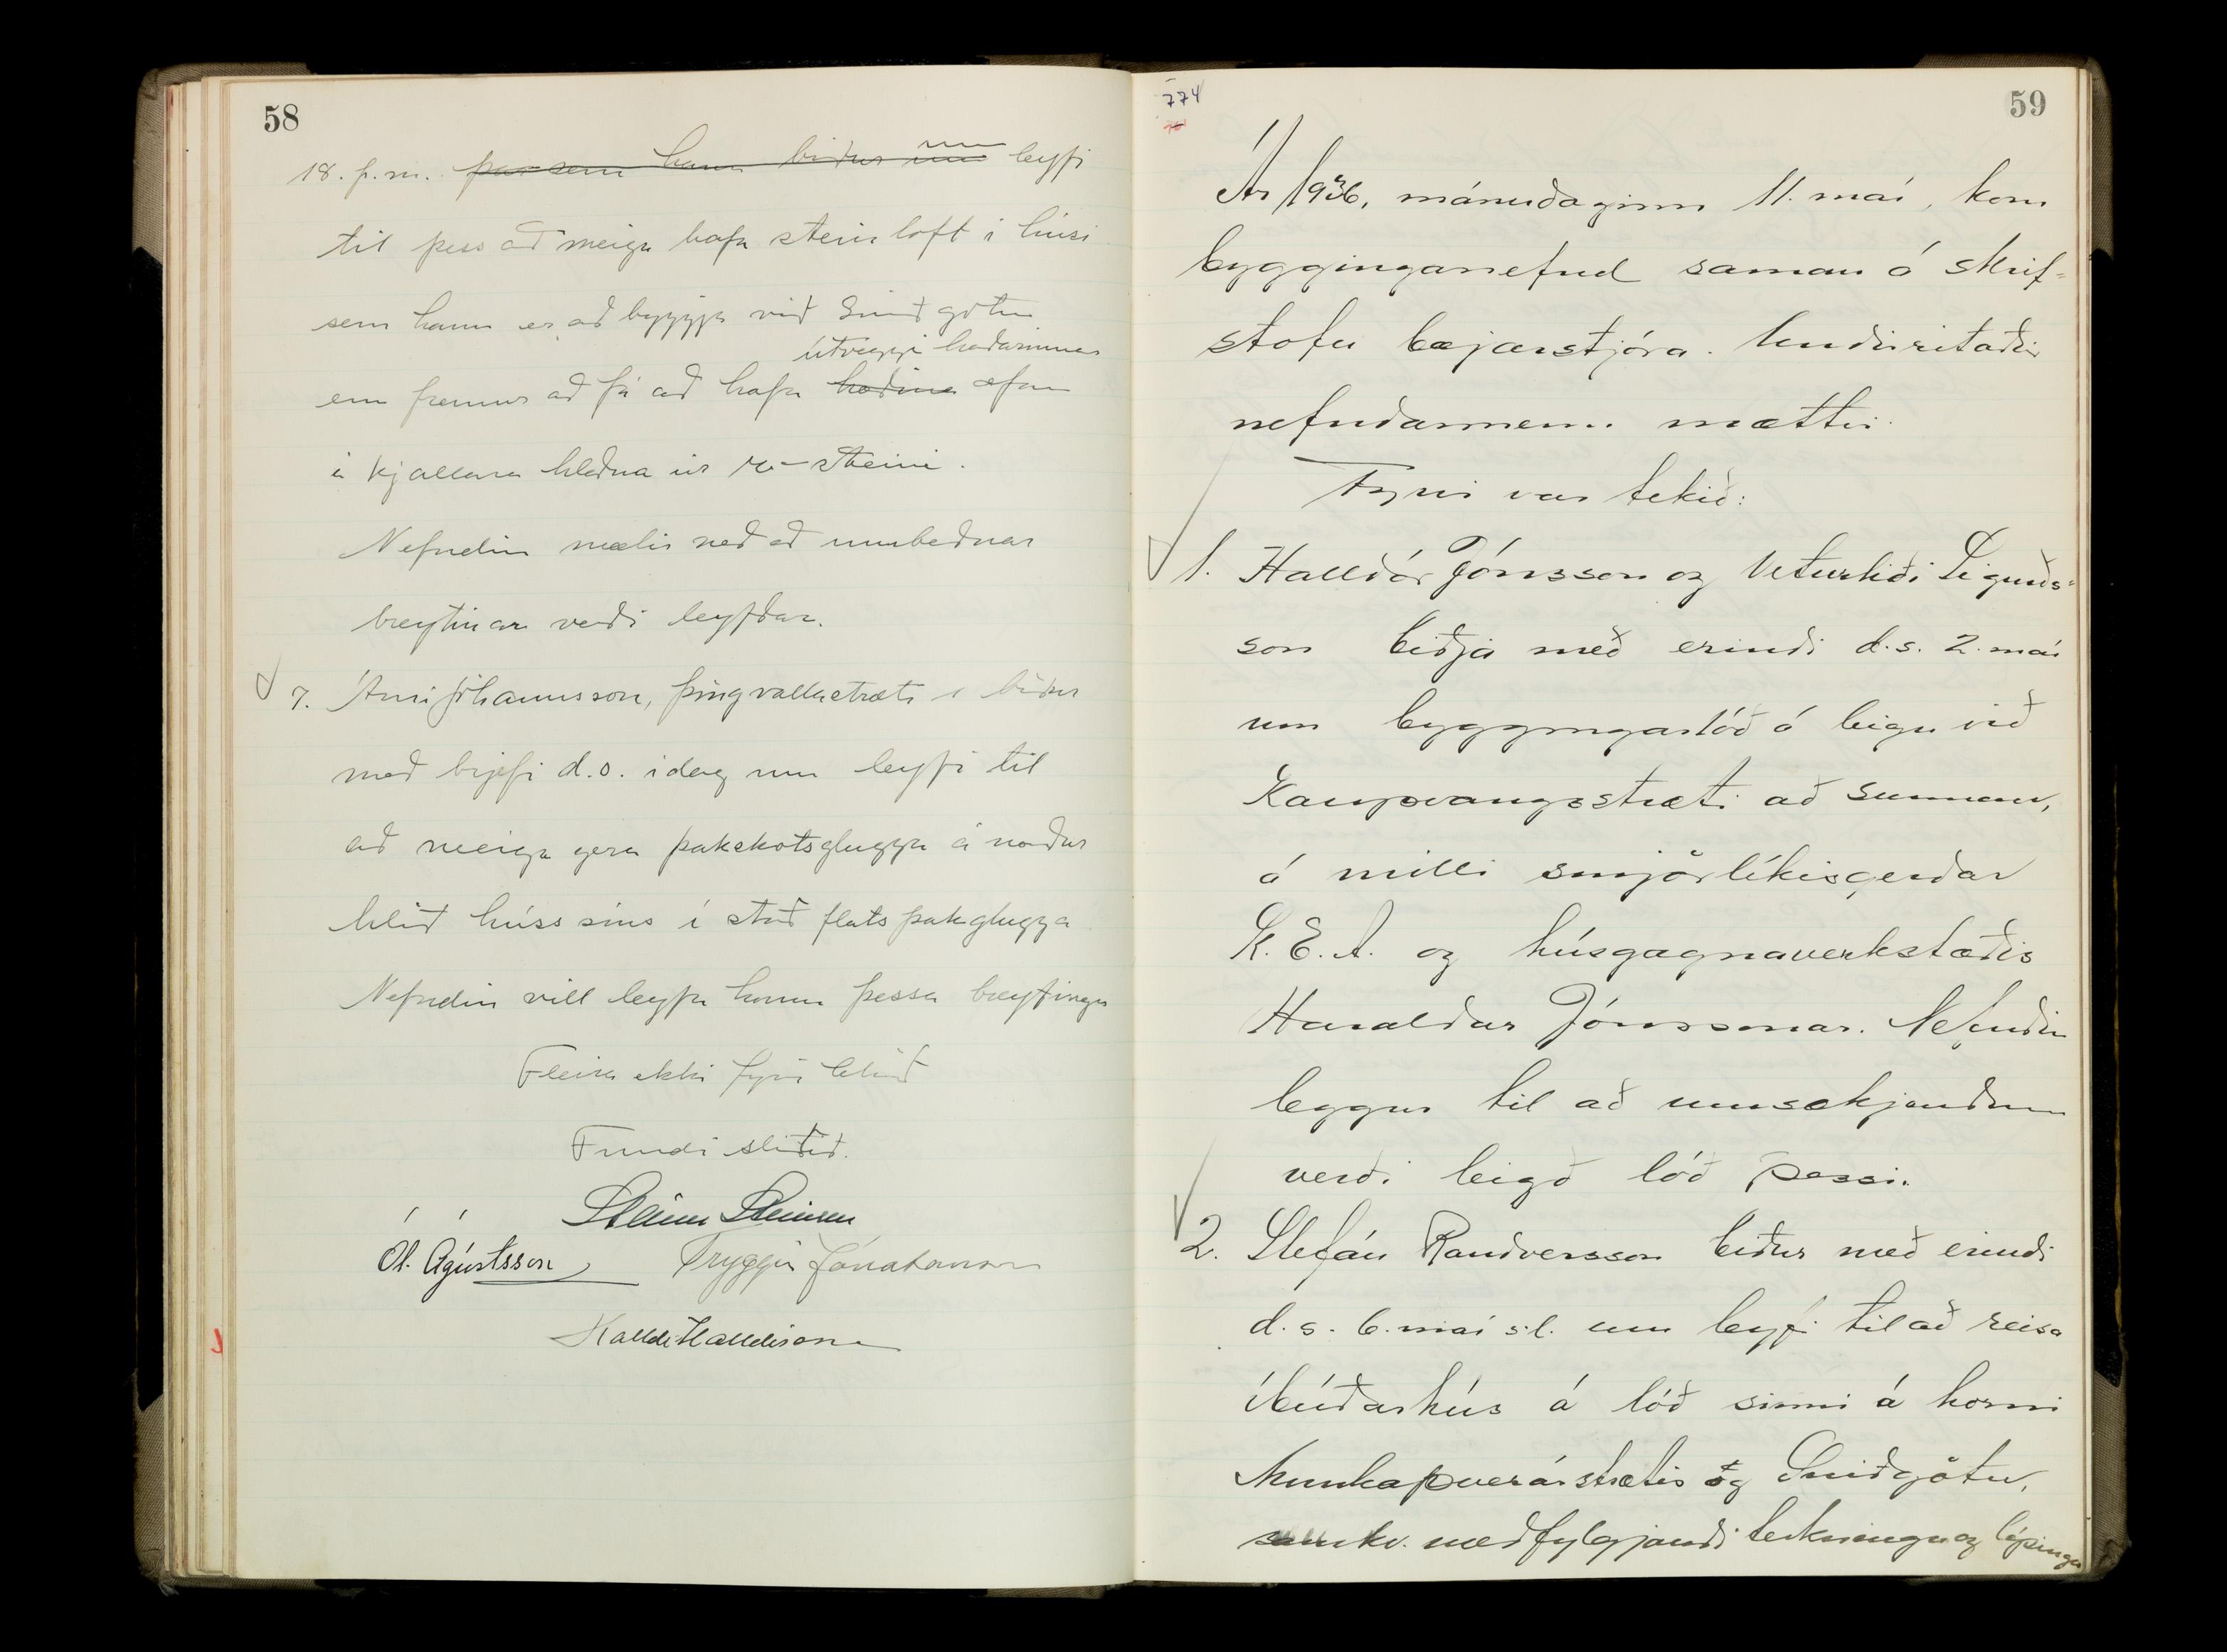 58
18. þ.m. þar sem hann biður um leyfi
til þess að meiga hafa steinloft í húsi
sem hann er að byggja við Smiðgötu
útveggi hæðarinnar
enn fremur að fá að hafa hæðina ofan
á kjallara hlaðna úr r-steini.
Nefndin mælir með að umbeðnar
breytinar verði leyfðar.
7. Árni Jóhannsson, þingvallastræti biður
með brjefi d.s. í dag um leyfi til
að meiga gera þakskotsglugga á norður
hlið húss síns í stað flats þakglugga
Nefndin vill leyfa honum þessa breytingu
Fleira ekki fyrir tekið
Fundi slitið.
Steinn Steinsen
Ól. Ágústsson Tryggvi Jónatansson
Halldór Halldórsson
774
59
Ár 1936, mánudaginn 11. maí, kom
bygginganefnd saman á skrif-
stofu bæjarstjóra. Undirritaðir
nefndarmenn mættir.
Fyrir var tekið:
1. Halldór Jónsson og Veturliði Sigurðs-
son biðja með erindi d.s. 2. maí
um byggingarlóð á leigu við
Kaupvangsstræti að sunnan,
á milli smjörlíkisgerðar
K.E.A. og húsgagnaverkstæðis
Haraldar Jónssonar. Nefndin
leggur til að umsækjendum
verði leigð lóð þessi.
2. Stefán Randversson biður með erindi
d.s. 6. maí s.l. um leyfi til að reisa
íbúðarhús á lóð sinni á horni
Munkaþverárstrætis og Smiðgötu,
samkv. meðfylgjandi teikningu og lýsingu